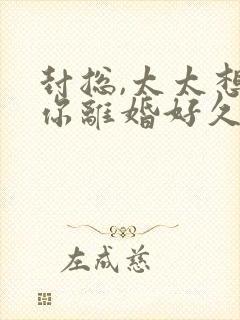 封總,太太想
你離婚好久
左成慈